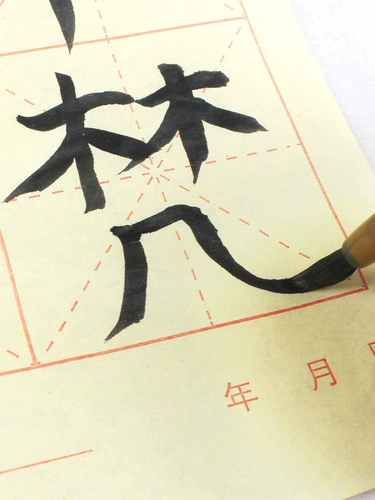 梵
年 月